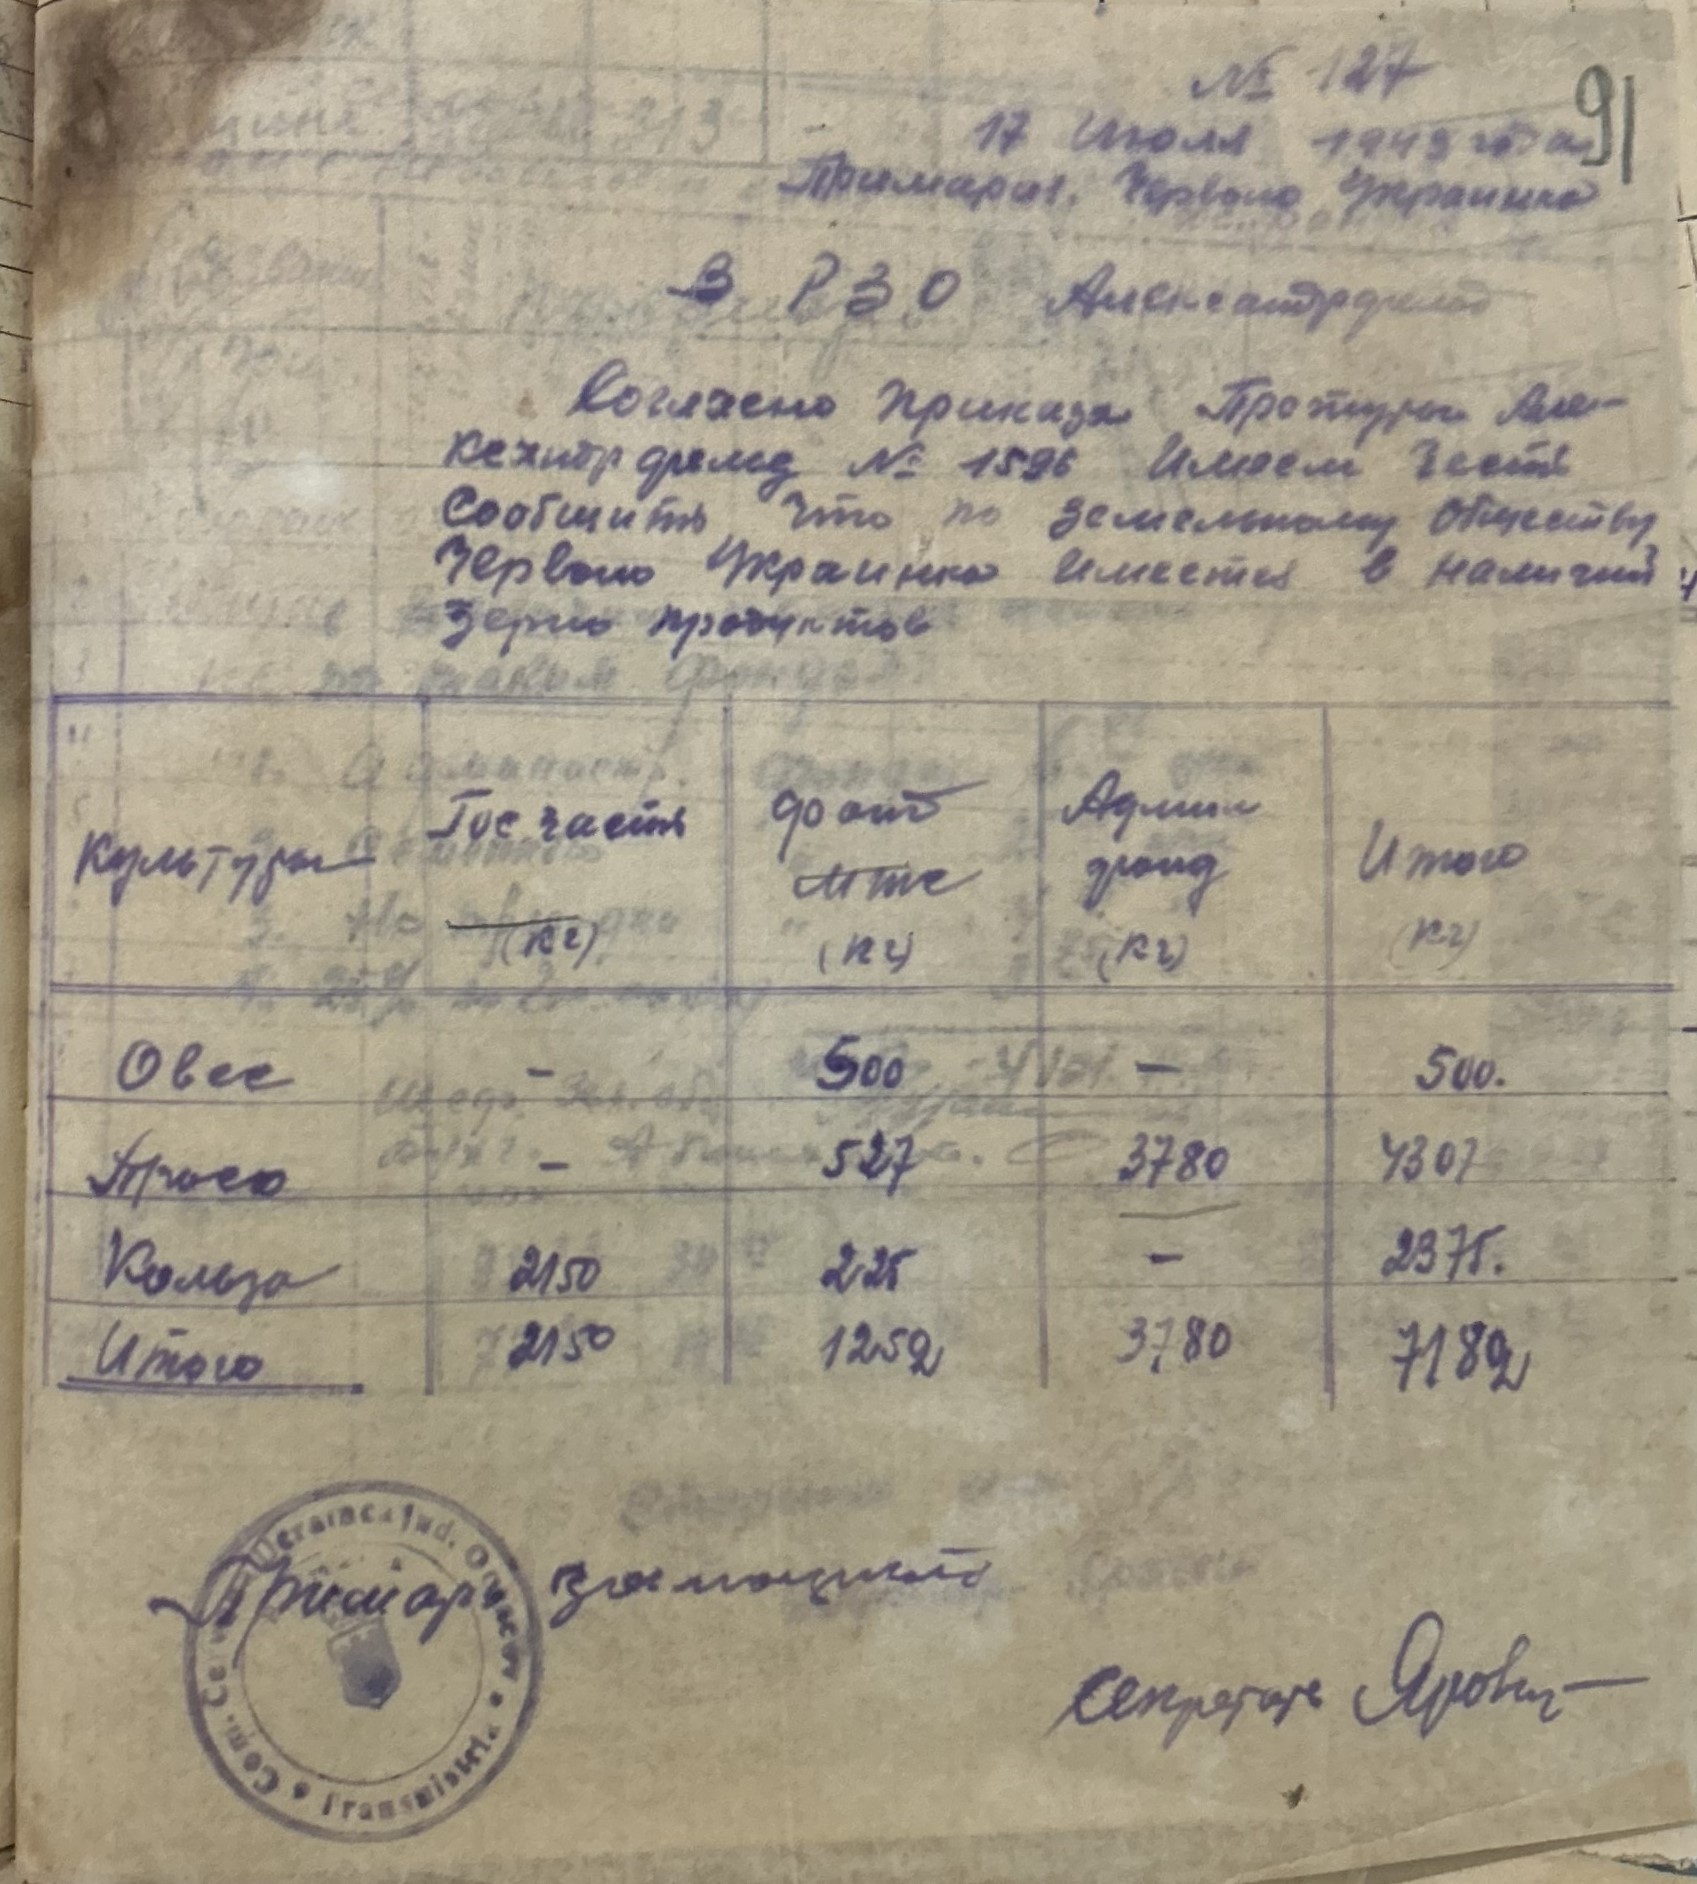 № 127
91
17 Июля 1943 года
Примария. Червоно Украинка
В РЗО Александрфельд
Согласно приказа Претуры Але-
ксандрфельд № 1596 Имеем Честь
Сообщить что по земельному Обществу
Червоно Украинка Имеется в наличии
Зерно продуктов
Культуры Гос часть фонд Админ Итого
МТС фонд
(кг) (кг) (кг) (кг)
Овес - 500 - 500.
Просо - 527 3780 4307
Кользо 2150 225 - 2375.
Итого 2150 1252 3780 7182
Примарь
Секретарь Яровой
Com. Cervona Ucrainca Jud. Oceacov • Transnistria •